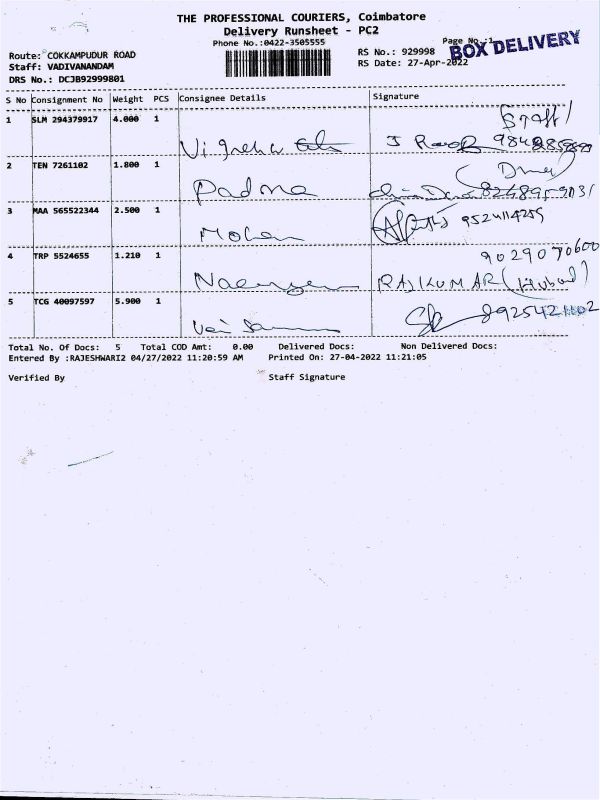 THE PROFESSIONAL COURIERS, Coimbatore
Delivery Runsheet - PC2
Phone No.:0422-3505555
Page No.:1
BOX DELIVERY
Route: COKKAMPUDUR ROAD
Staff: VADIVANANDAM
DRS No.: DCJB92999801
RS No.: 929998
RS Date: 27-Apr-2022
S No Consignment No Weight PCS Consignee Details Signature
1 SLM 294379917 4.000 1 Staff
2 TEN 7261102 1.800 1 Padma
3 MAA 565522344 2.500 1 Mohan 9524114255
4 TRP 5524655 1.210 1 RAJKUMAR 9029070600
5 TCG 40097597 5.900 1 8925421102
Total No. Of Docs: 5 Total COD Amt: 0.00 Delivered Docs: Non Delivered Docs:
Entered By :RAJESHWARI2 04/27/2022 11:20:59 AM Printed On: 27-04-2022 11:21:05
Verified By Staff Signature